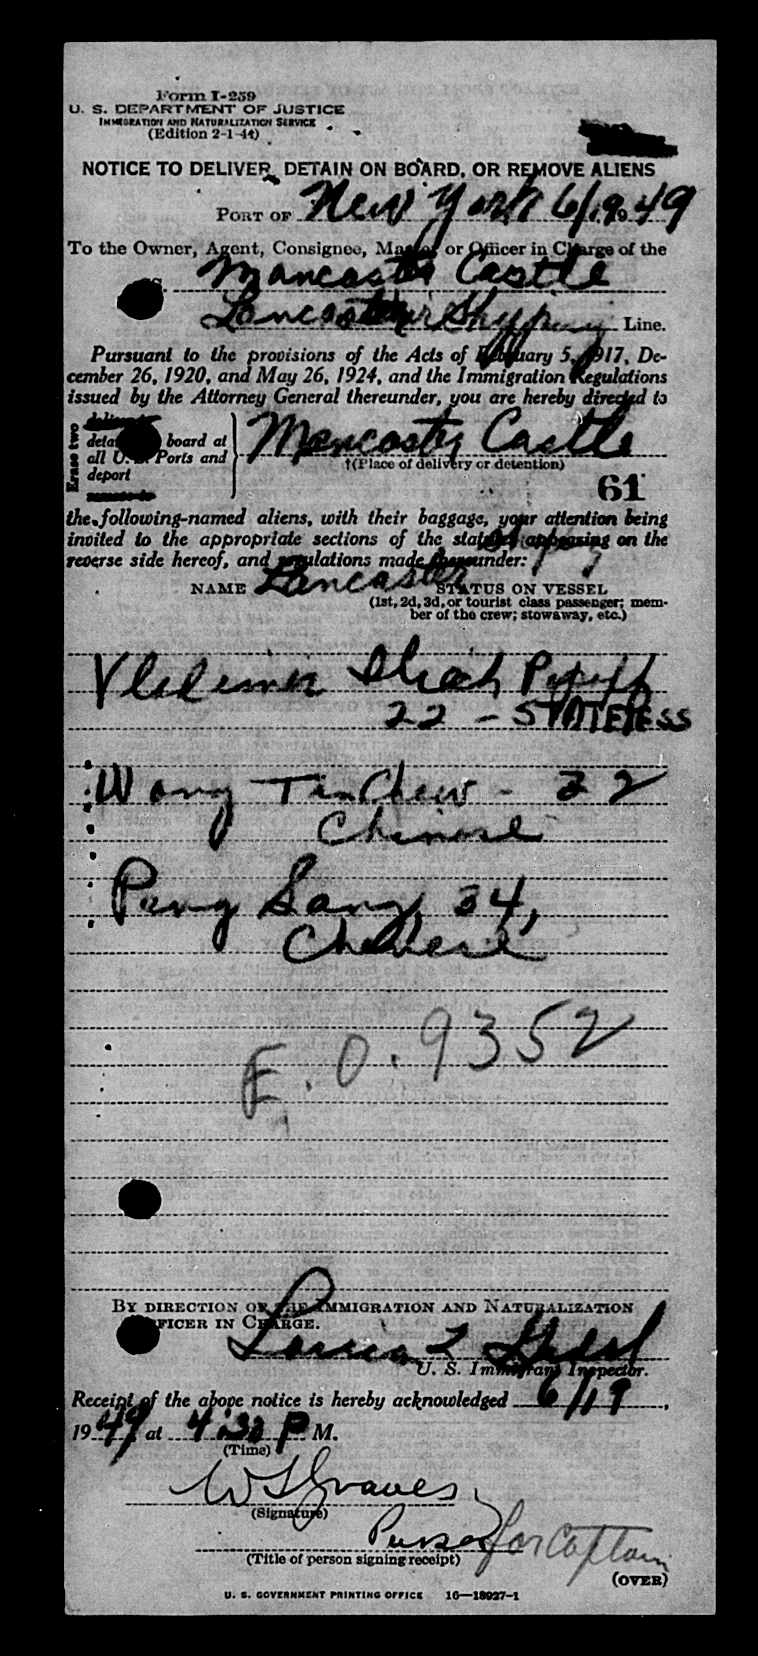 Form I-259
U. S. DEPARTMENT OF JUSTICE
IMMIGRATION AND NATURALIZATION SERVICE
(Edition 2-1-44)
NOTICE TO DELIVER, DETAIN ON BOARD, OR REMOVE ALIENS
PORT OF New York 6/19 1949
To the Owner, Agent, Consignee, Master or Officer in Charge of the
SS Mancaster Castle
Lancaster Shipping Line.
Pursuant to the provisions of the Acts of February 5, 1917, De-
cember 26, 1920, and May 26, 1924, and the Immigration Regulations
issued by the Attorney General thereunder, you are hereby directed to
Erase two
deliver to
detain on board at
all U. S. Ports and
deport
remove to
Mancaster Castle
†(Place of delivery or detention)
61
the following-named aliens, with their baggage, your attention being
invited to the appropriate sections of the statutes appearing on the
reverse side hereof, and regulations made thereunder:
NAME Lancaster Shipping
STATUS ON VESSEL
(1st, 2d, 3d, or tourist class passenger; mem-
ber of the crew; stowaway, etc.)
Vladimir Popoff
22 - STATELESS
Wong Tin Chew - 32
Chinese
Pang Sang, 34,
Chinese
E. O. 9352
BY DIRECTION OF THE IMMIGRATION AND NATURALIZATION
OFFICER IN CHARGE.
U. S. Immigrant Inspector.
Receipt of the above notice is hereby acknowledged 6/19,
1949 at 4:30 P M.
(Time)
W S Graves
(Signature)
Purser for Captain
(Title of person signing receipt)
(OVER)
U. S. GOVERNMENT PRINTING OFFICE 16—18927-1